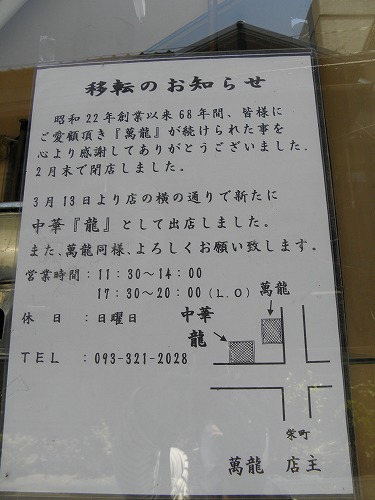 移転のお知らせ
昭和22年創業以来68年間、皆様に
ご愛顧頂き『萬龍』が続けられた事を
心より感謝してありがとうございました.
2月末で閉店しました。
3月13日より店の横の通りで新たに
中華『龍』として出店しました。
また、萬龍同様、よろしくお願い致します。
営業時間：11：30～14：00
17：30～20：00(L.O)
萬龍
休　日　：日曜日
中華
龍
TEL　：093-321-2028
栄町
萬龍　店主